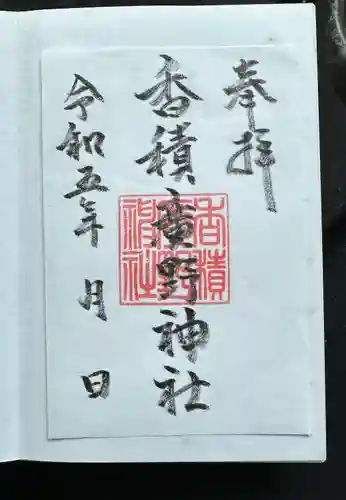 奉拝
香積廣野神社
令和五年 月 日
香積
廣野
神社